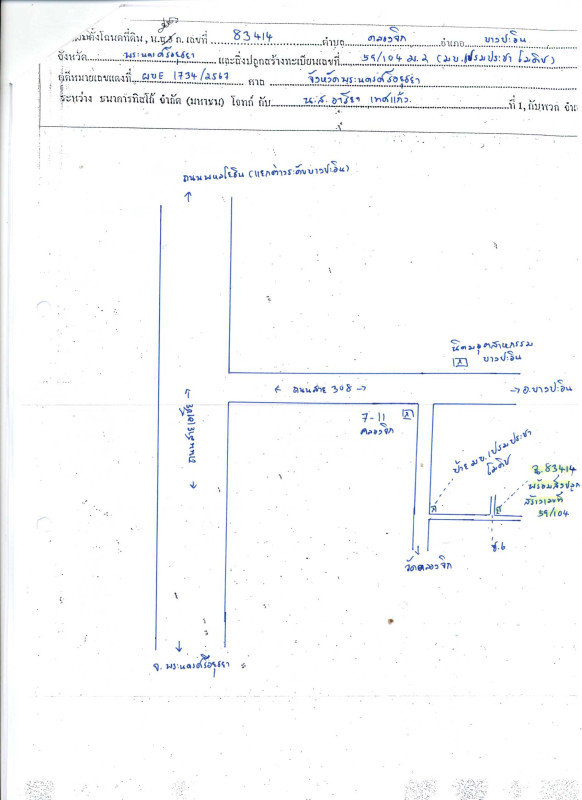 ที่ตั้งโฉนดที่ดิน, น.ส.3 ก. เลขที่ 83414 ตำบล คลองจิก อำเภอ บางปะอิน
จังหวัด พระนครศรีอยุธยา และสิ่งปลูกสร้างทะเบียนเลขที่ 59/104 ม.2 (ม.บ.เปรมประชา โมดิช)
คดีหมายเลขแดงที่ ผบE 1734/2567 ศาล จังหวัดพระนครศรีอยุธยา
ระหว่าง ธนาคารทิสโก้ จำกัด (มหาชน) โจทก์ กับ น.ส. อาริยา เทศแก้ว ที่ 1, กับพวก
ถนนพหลโยธิน (แยกต่างระดับบางปะอิน)
นิคมอุตสาหกรรม
บางปะอิน
ถนนสาย 308
อ.บางปะอิน
7-11
คลองจิก
ถนนสายเอเซีย
ป้าย ม.บ.เปรมประชา
โมดิช
ฉ.83414
พร้อมสิ่งปลูก
สร้างเลขที่
59/104
ซ.6
วัดคลองจิก
จ. พระนครศรีอยุธยา